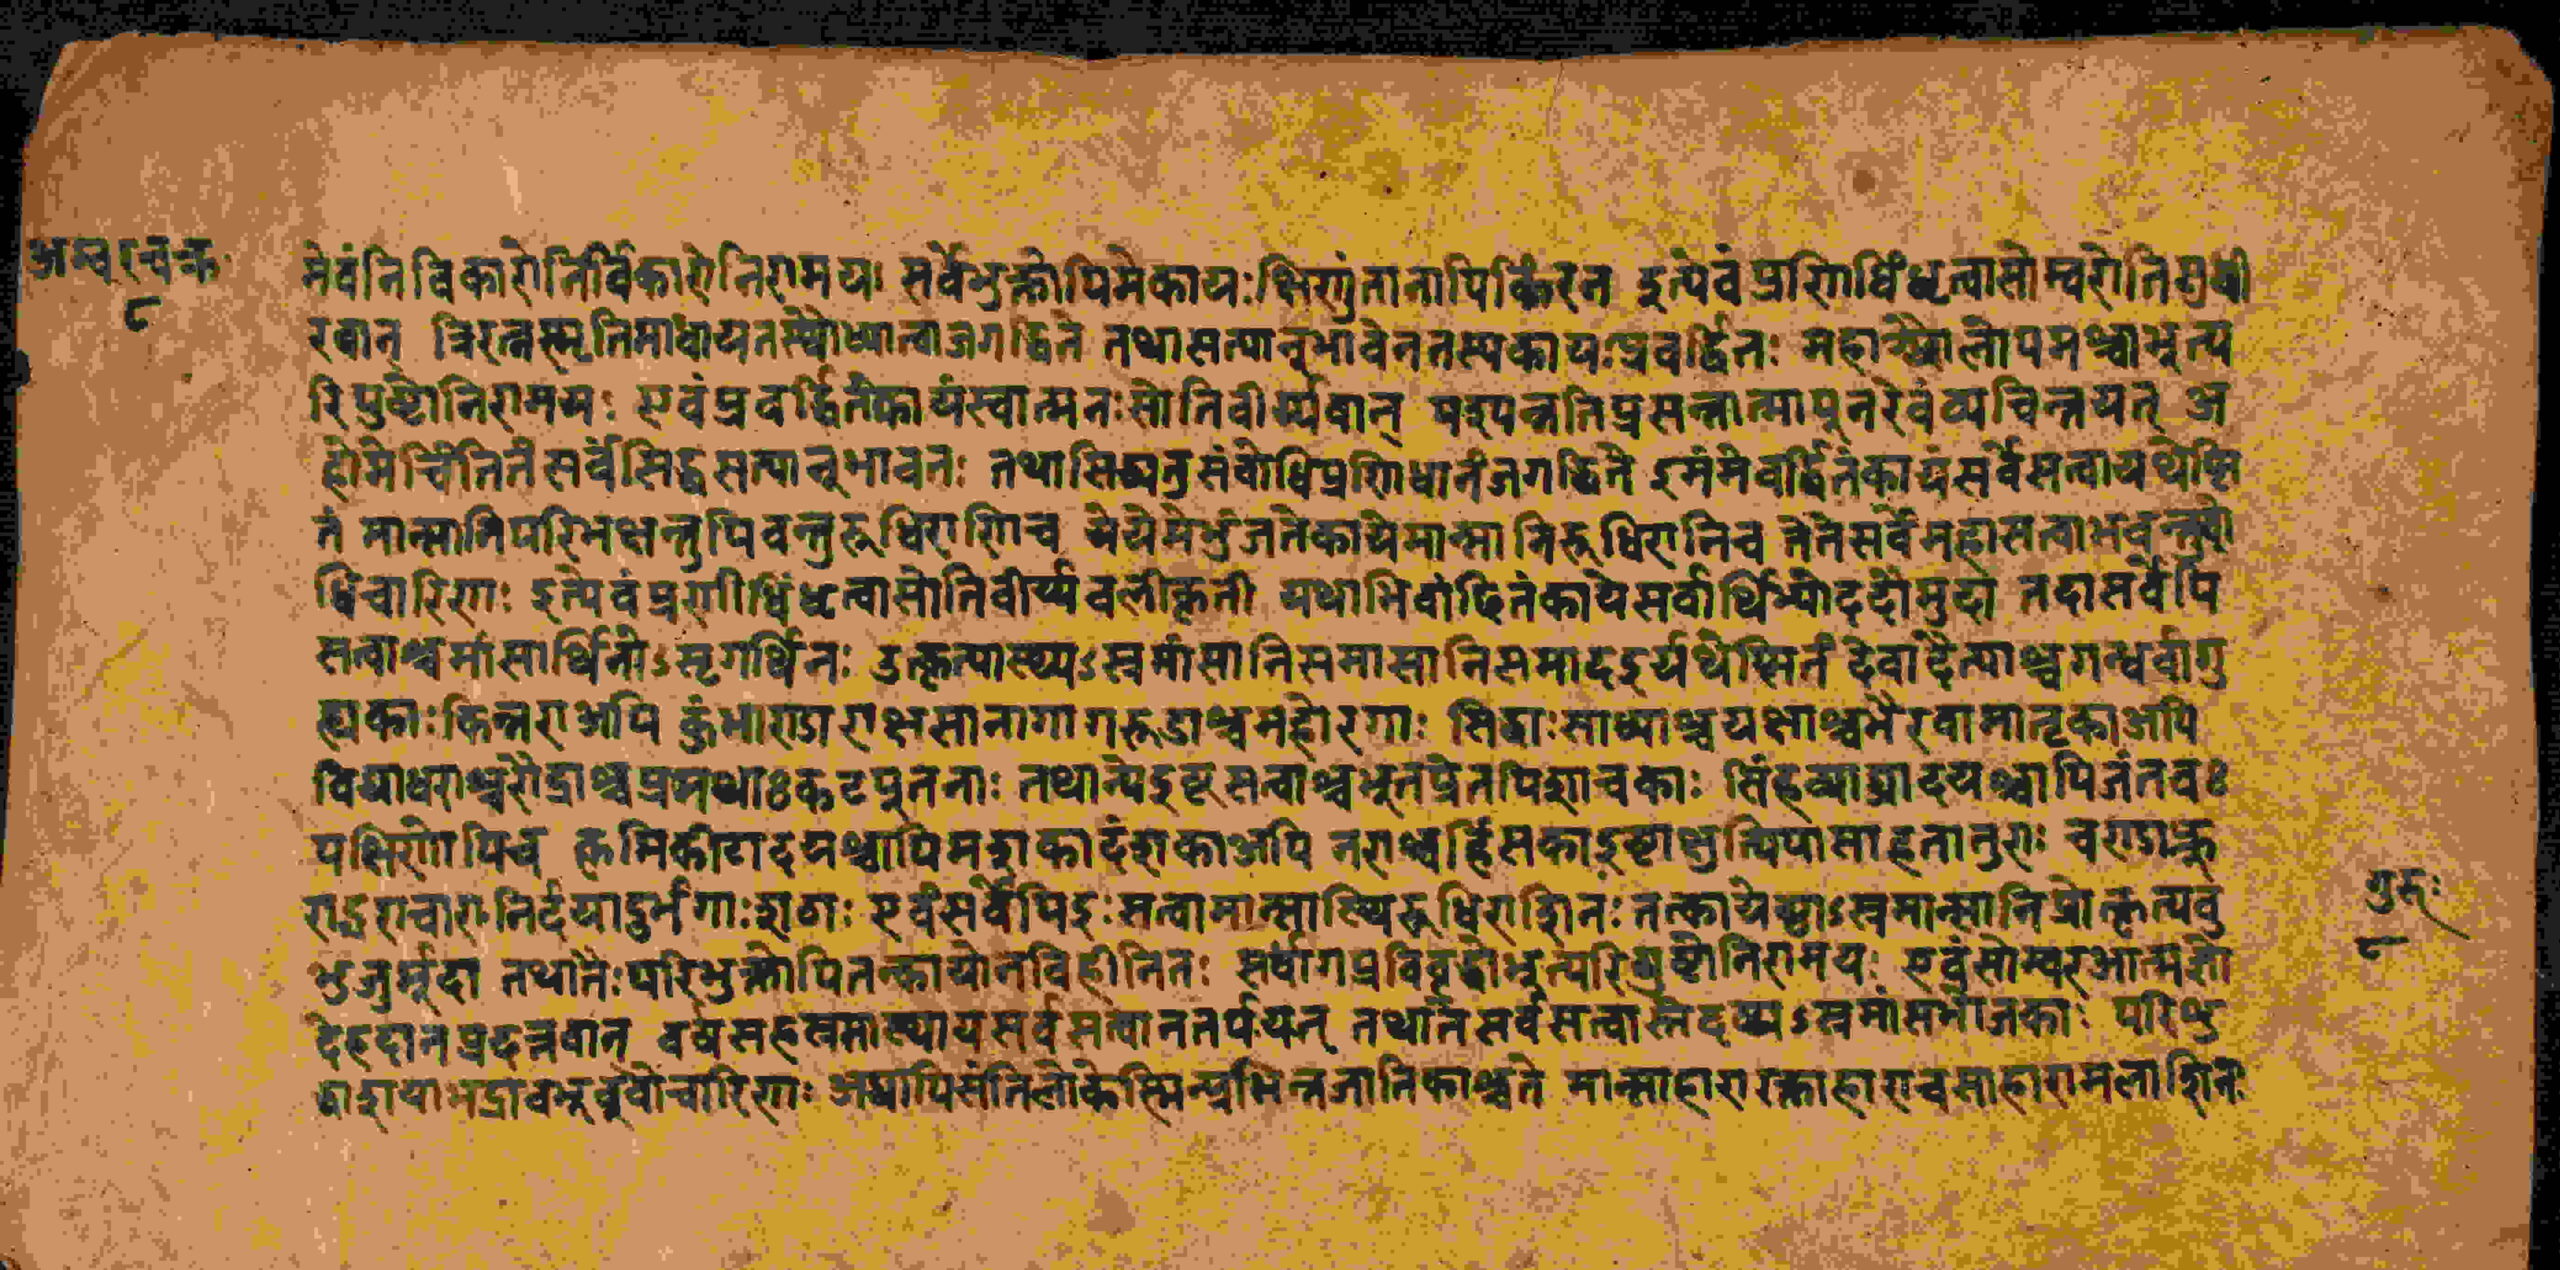 अम्बरचक्र
८
मेवंनिविकारोनिर्विकारोनिरामयः सर्वेभुक्तोपिमेकायःक्षिणुंतानापिकिंरन इत्येवंप्रणिधिंधृत्वासोम्वरोतिसुधी
रवान् त्रिरत्नस्मृतिमाधायतस्थोध्यात्वाजगद्धिते तथासत्यानूभावेनतस्यकायःप्रवर्द्धितः महाशैलोपमश्चाभूत्प
रिपुष्टोनिरामयः एवंप्रवर्द्धितंकायंस्वात्मनःसोतिवीर्य्यवान् पश्यन्नतिप्रसन्नात्मापुनरेवंव्यचिन्तयत् अ
होमेचिंतितंसर्वंसिद्धसत्यानूभावतः तथासिध्यतुसंवोधिप्रणिधानंजगद्धिते इमंमेवर्द्धितंकायंसर्वेसत्वायथेप्सि
तं मान्सानिपरिभक्षन्तुपिवन्तुरूधिराणिच येयेमेभुंजतेकायेमान्सानिरूधिरानिच तेतेसर्वेमहासत्वाभवन्तुवो
धिचारिणः इत्येवंप्रणीधिंधृत्वासोतिवीर्य्यवलीकृती यथाभिवांछितंकायेसर्वार्थिभ्योददौमुदा तदासर्वेपि
सत्वाश्चमांसार्थिनोऽसृगर्थिनः उत्कृत्पास्थ्यऽस्वमांसानिसमासानिसमादडर्यथेप्सितं देवादैत्याश्चगन्धर्वागु
ह्यकाःकिन्नराअपि कुंभाण्डाराक्षसानागागरूडाश्चमहोरगाः सिद्धाःसाध्याश्चयक्षाश्चभैरवामातृकाअपि
विद्याधराश्चरौद्राश्चप्रमथाःकटपुतनाः तथान्येडष्टसत्वाश्चभूतप्रेतपिशाचकाः सिंहव्याघ्रादयश्चापिजंतवः
पक्षिणोपिच कृमिकीटादयश्चापिमशकादंशकाअपि नराश्चहिंसकाडष्टाक्षुत्पिपासाहतातुराः चण्डाक्रु
राडराचारानिर्दयाडुर्भगाःशठाः एवंसर्वेपिडःसत्वामान्सास्थिरूधिराशिनः तत्कायेष्ठाऽस्वमान्सानिप्रोत्कृत्यवु
भुजुर्मूदा तथातैःपरिभुक्तोपितत्कायोनविहीनितः सर्वांगप्रविवृद्धोभूत्परिपुष्टोनिरामयः एवंसोम्वरआत्मज्ञो
देहदानप्रदत्तवान् वर्षसहस्त्रमाख्यायसर्वसत्वानतर्पयत् तथातेसर्वसत्वास्तेदव्यऽस्वमांसभोजकाः परिशु
द्धाशयाभद्रावभूवुवोचारिणः अद्यापिसंतिलोकेस्मिन्प्रभिन्नजातिकाश्चते मान्साहारारक्ताहारावसाहारामलाशिनः
गुरूः
८